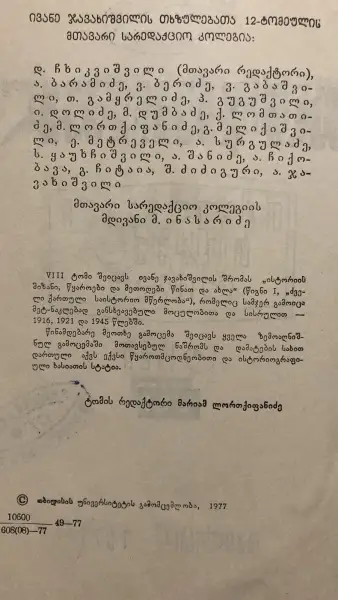 ივანე ჯავახიშვილის თხზულებათა 12-ტომეულის
მთავარი სარედაქციო კოლეგია:
დ. ჩხიკვიშვილი (მთავარი რედაქტორი),
ა. ბარამიძე, ვ. ბერიძე, ვ. გაბაშვი-
ლი, თ. გამყრელიძე, პ. გუგუშვილი,
ი. დოლიძე, მ. დუმბაძე, ქ. ლომთათი-
ძე, მ. ლორთქიფანიძე, გ. მელიქიშვი-
ლი, ე. მეტრეველი, ა. სურგულაძე,
ს. ყაუხჩიშვილი, ა. შანიძე, ა. ჩიქო-
ბავა, გ. ჩიტაია, შ. ძიძიგური, ა. ჯა-
ვახიშვილი
მთავარი სარედაქციო კოლეგიის
მდივანი მ. ინასარიძე
VIII ტომი შეიცავს ივანე ჯავახიშვილის შრომას „ისტორიის
მიზანი, წყაროები და მეთოდები წინათ და ახლა“ (წიგნი I, „ძვე-
ლი ქართული საისტორიო მწერლობა“), რომელიც სამჯერ გამოიცა
მეტ-ნაკლებად განსხვავებული მოცულობითა და სისრულით —
1916, 1921 და 1945 წლებში.
წინამდებარე მეოთხე გამოცემა შეიცავს ყველა ზემოაღნიშ-
ნულ გამოცემაში მოთავსებულ ნაშრომს და დამატების სახით
დართული აქვს ექვსი წყაროთმცოდნეობითი და ისტორიოგრაფი-
ული ხასიათის სტატია.
ტომის რედაქტორი მარიამ ლორთქიფანიძე
© თბილისის უნივერსიტეტის გამომცემლობა, 1977
10600
608(08)—77 49—77